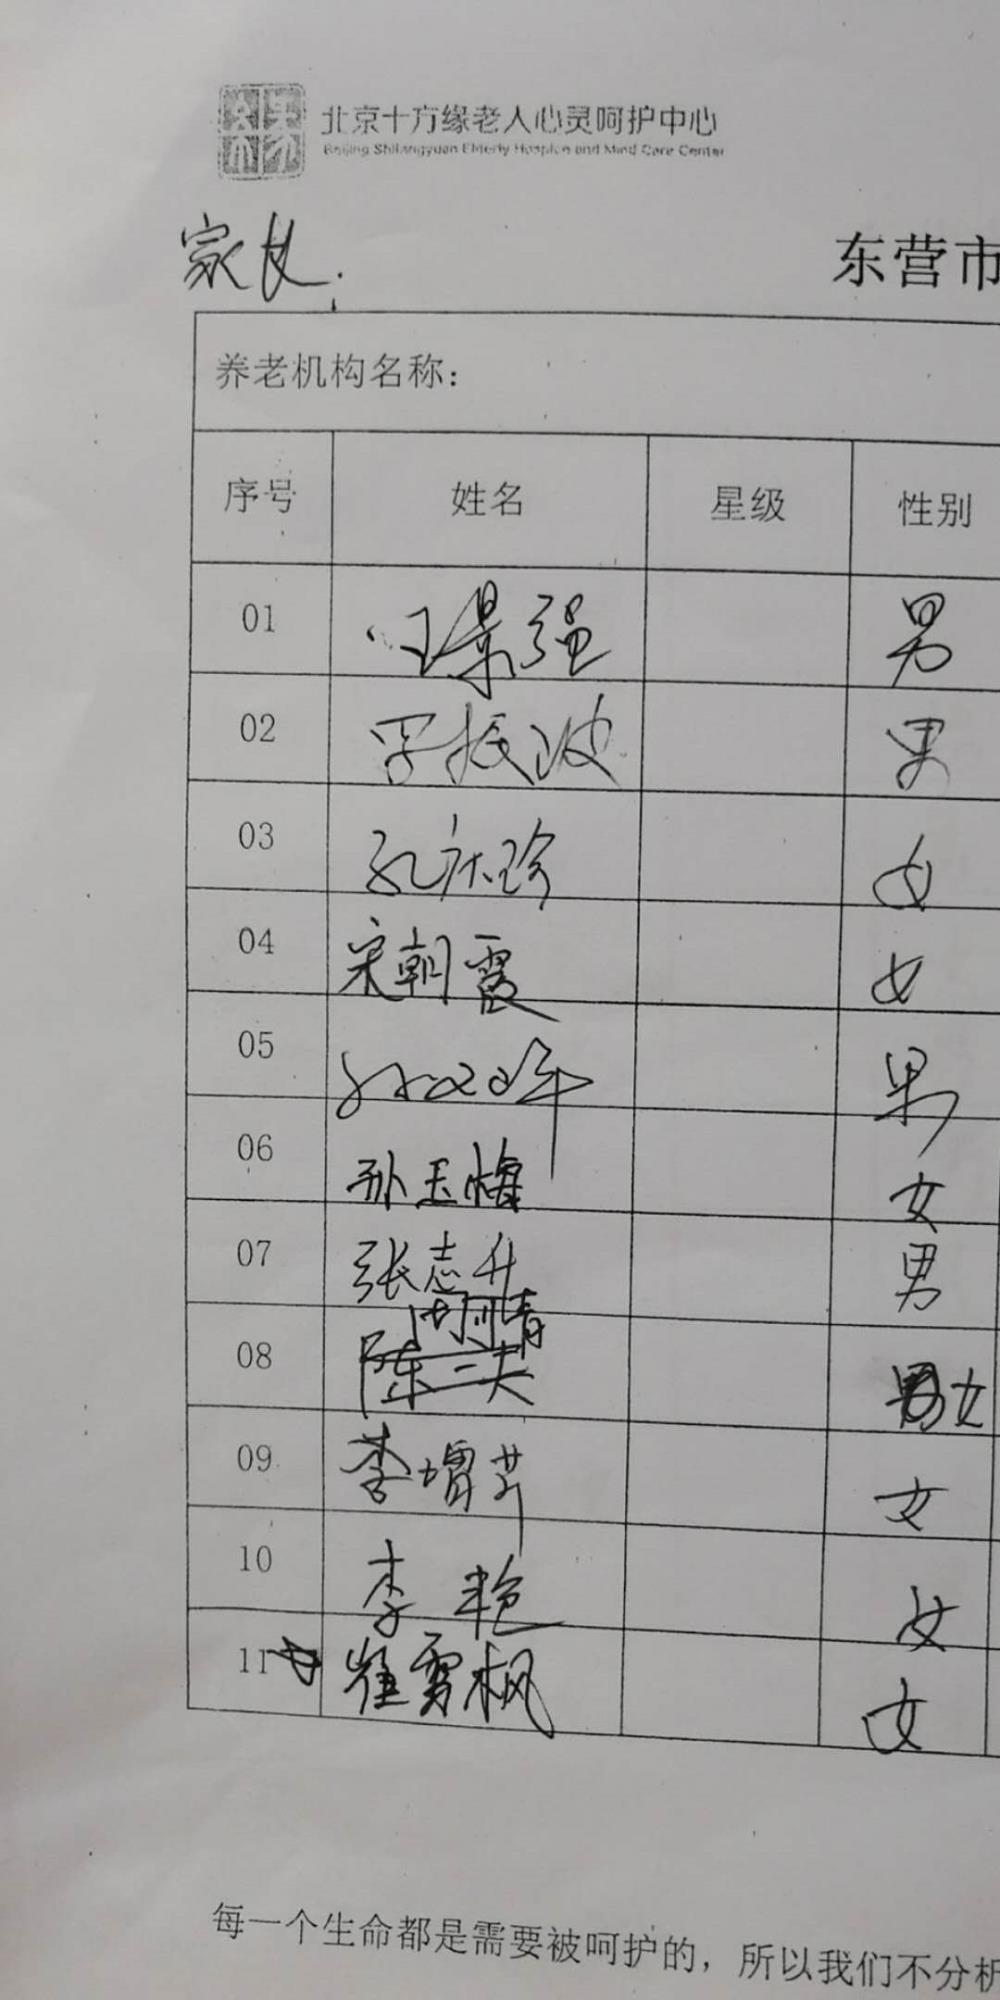 北京十方缘老人心灵呵护中心
Beijing Shifangyuan Elderly Hospice and Mind Care Center
家长.
东营市
养老机构名称:
序号 姓名 星级 性别
01 景强 男
02 振波 男
03 孔庆珍 女
04 宋朝霞 女
05 男
06 孙玉梅 女
07 张志升 男
08 陈二夫 女
09 李增芹 女
10 李艳 女
11 崔雪枫 女
每一个生命都是需要被呵护的，所以我们不分析